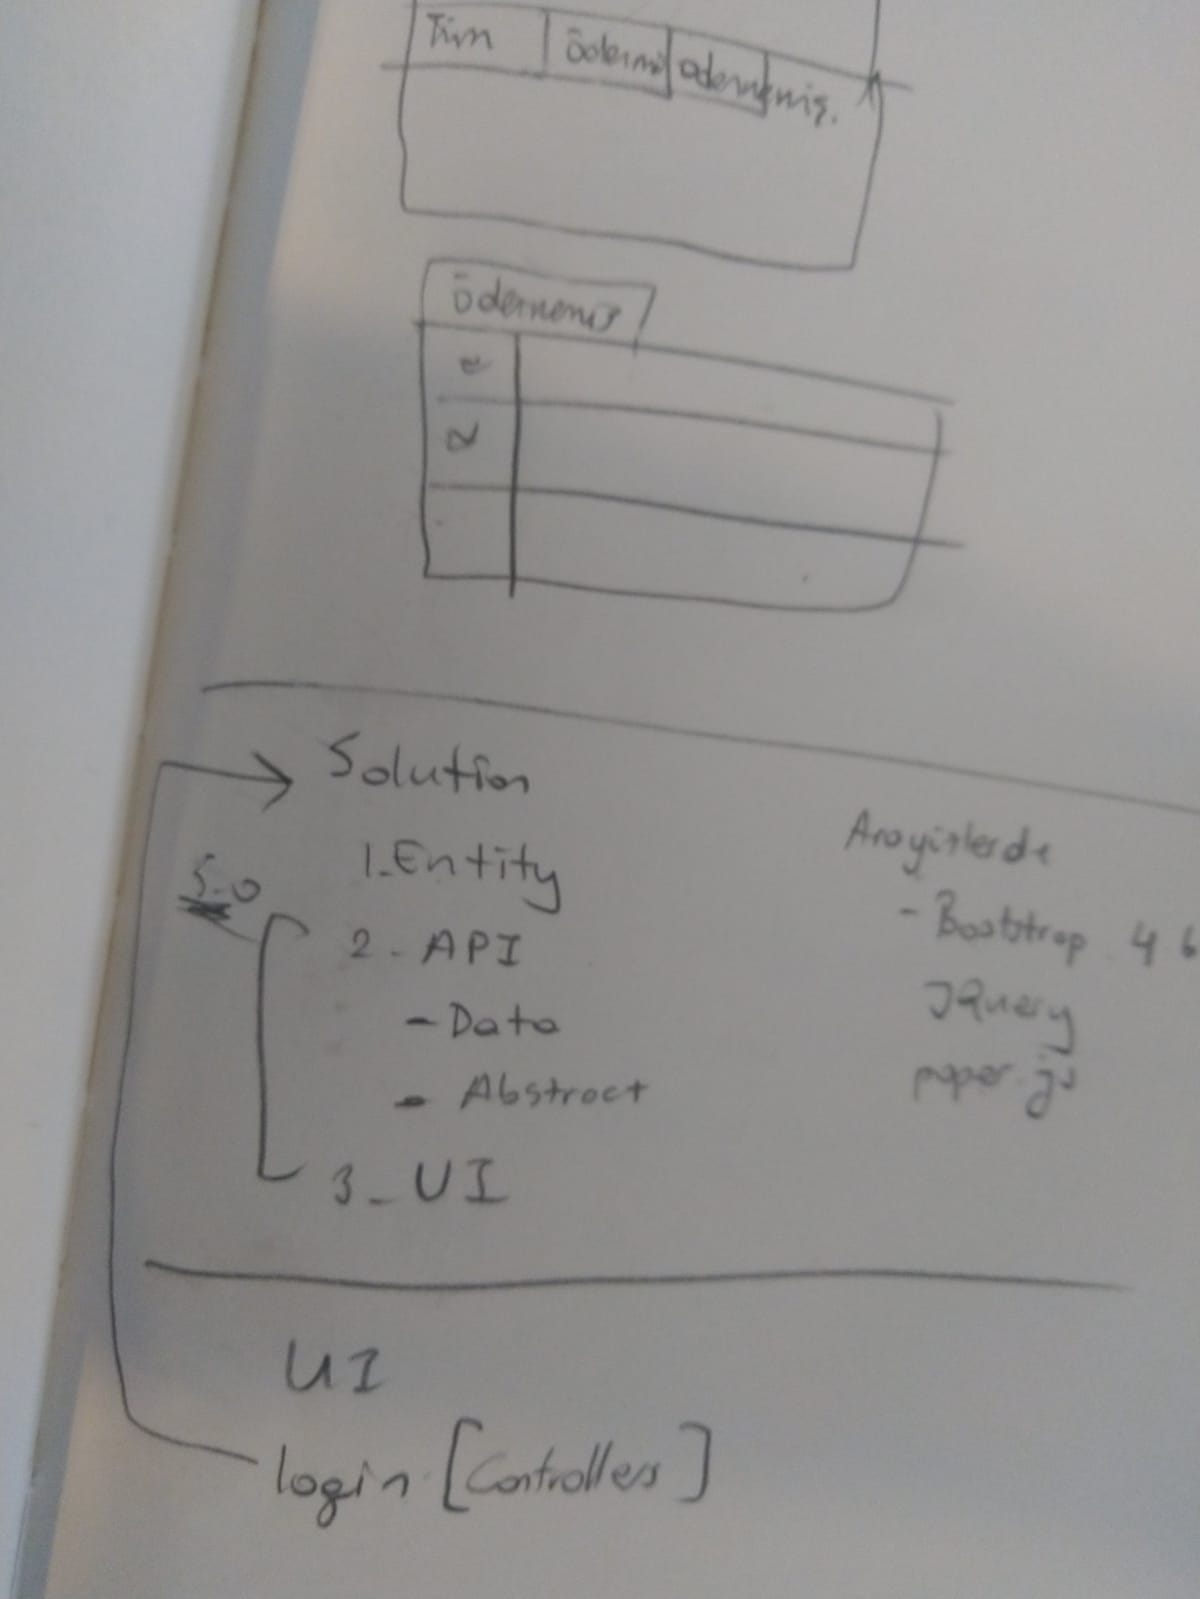 Tüm ödenmiş ödenmemiş.
ödenmemiş
Solution
1-Entity
5.0
2- API
- Data
- Abstract
3- UI
Arayüzlerde
- Bootstrap 4 6
JQuery
poper.js
UI
login [Controllers]